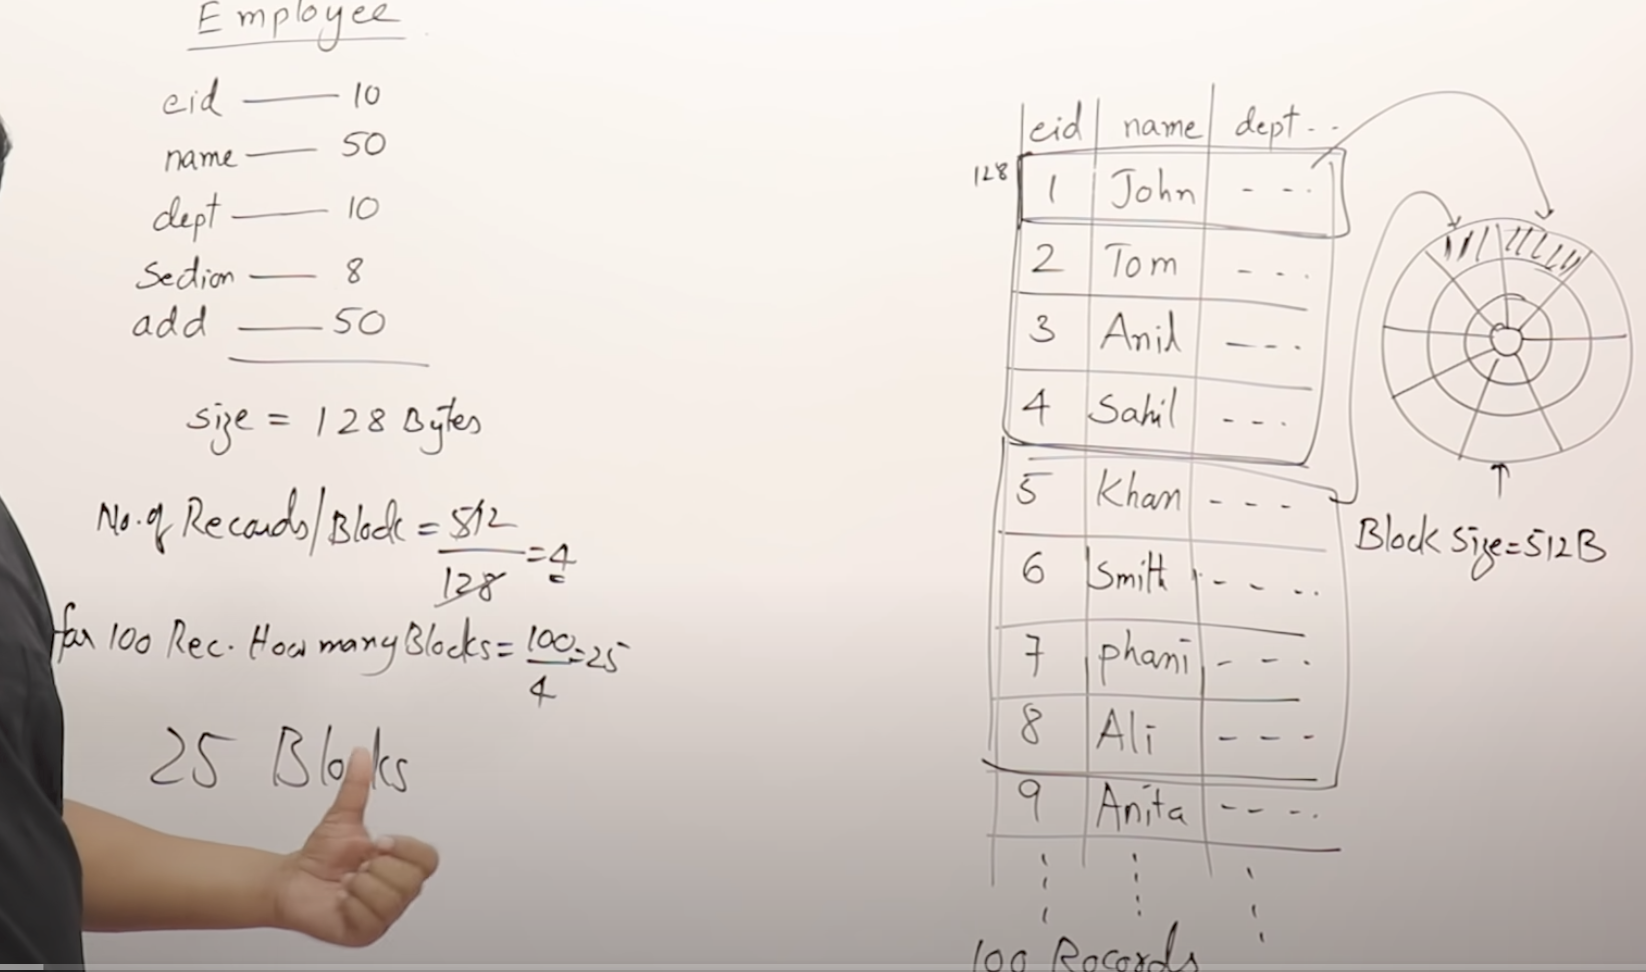 Employee
eid — 10
name — 50
dept — 10
Section — 8
add — 50
size = 128 Bytes
No. of Records/Block = 512/128 = 4
for 100 Rec. How many Blocks = 100/4 = 25
25 Blocks
eid name dept ..
128
1 John - - -
2 Tom - - -
3 Anil - - -
4 Sahil - - -
5 Khan - - -
6 Smith - - - -
7 phani - - -
8 Ali - - -
9 Anita - - - -
100 Records
Block Size=512B